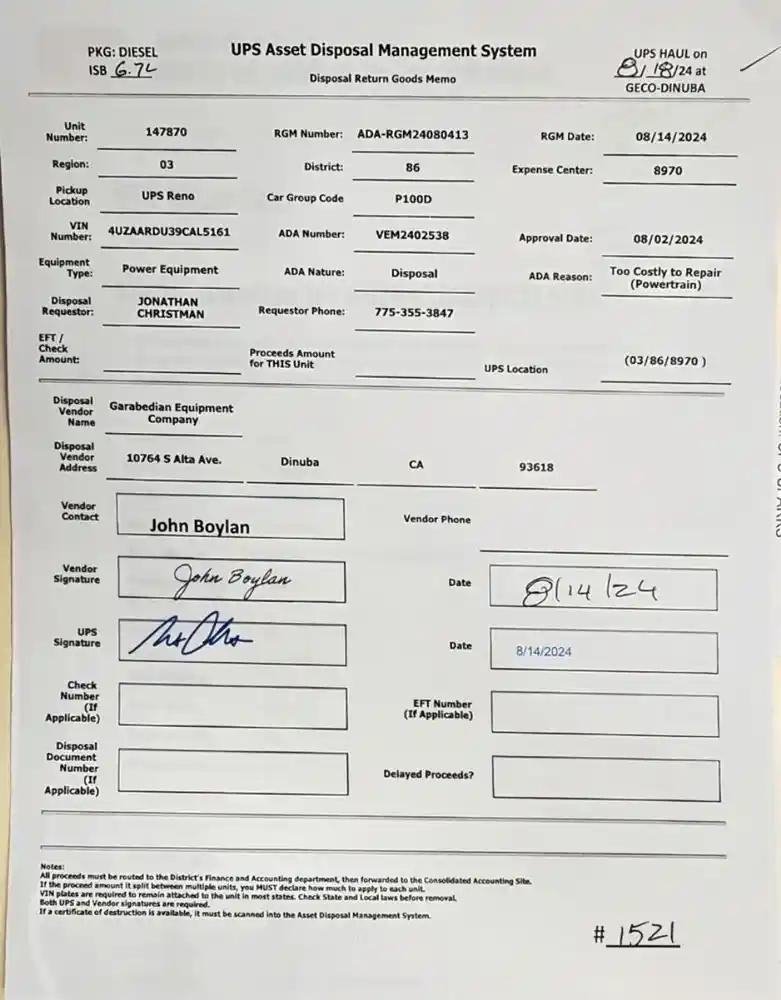 PKG: DIESEL
ISB 6.7L
UPS Asset Disposal Management System
Disposal Return Goods Memo
UPS HAUL on
8/18/24 at
GECO-DINUBA
Unit Number: 147870 RGM Number: ADA-RGM24080413 RGM Date: 08/14/2024
Region: 03 District: 86 Expense Center: 8970
Pickup Location UPS Reno Car Group Code P100D
VIN Number: 4UZAARDU39CAL5161 ADA Number: VEM2402538 Approval Date: 08/02/2024
Equipment Type: Power Equipment ADA Nature: Disposal ADA Reason: Too Costly to Repair (Powertrain)
Disposal Requestor: JONATHAN CHRISTMAN Requestor Phone: 775-355-3847
EFT / Check Amount: Proceeds Amount for THIS Unit UPS Location (03/86/8970 )
Disposal Vendor Name Garabedian Equipment Company
Disposal Vendor Address 10764 S Alta Ave. Dinuba CA 93618
Vendor Contact John Boylan Vendor Phone
Vendor Signature John Boylan Date 8/14/24
UPS Signature Date 8/14/2024
Check Number (If Applicable) EFT Number (If Applicable)
Disposal Document Number (If Applicable) Delayed Proceeds?
Notes:
All proceeds must be routed to the District's Finance and Accounting department, then forwarded to the Consolidated Accounting Site.
If the proceed amount it split between multiple units, you MUST declare how much to apply to each unit.
VIN plates are required to remain attached to the unit in most states. Check State and Local laws before removal.
Both UPS and Vendor signatures are required.
If a certificate of destruction is available, it must be scanned into the Asset Disposal Management System.
# 1521